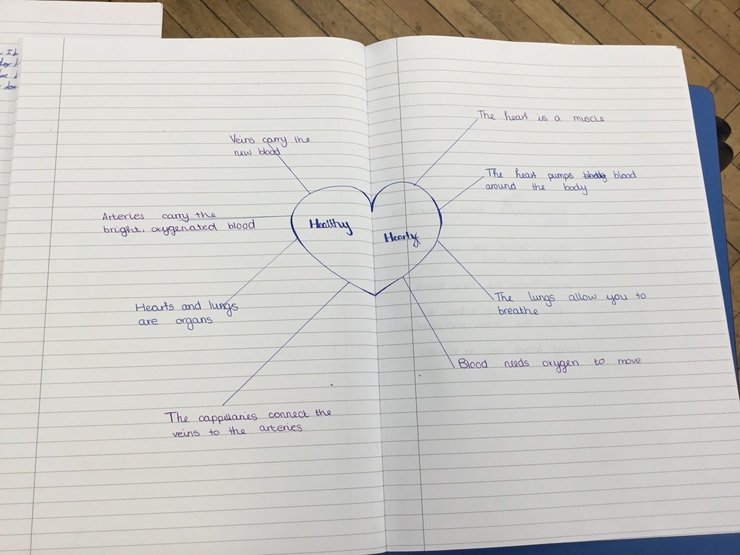 Veins carry the
new blood
Arteries carry the
bright, oxygenated blood
Hearts and lungs
are organs
The cappillaries connect the
veins to the arteries
Healthy
Hearty
The heart is a muscle
The heart pumps blood
around the body
The lungs allow you to
breathe
Blood needs oxygen to move